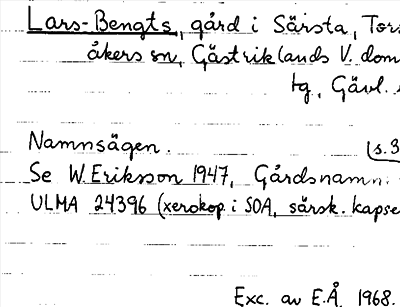 Lars-Bengts, gård i Särsta, Tors
åkers sn, Gästriklands V. dom
tg, Gävl.
Namnsägen. (s.3
Se W. Eriksson 1947, Gårdsnamn.
ULMA 24396 (xerokop. i SOA, särsk. kapse
Exc. av E.Å. 1968.